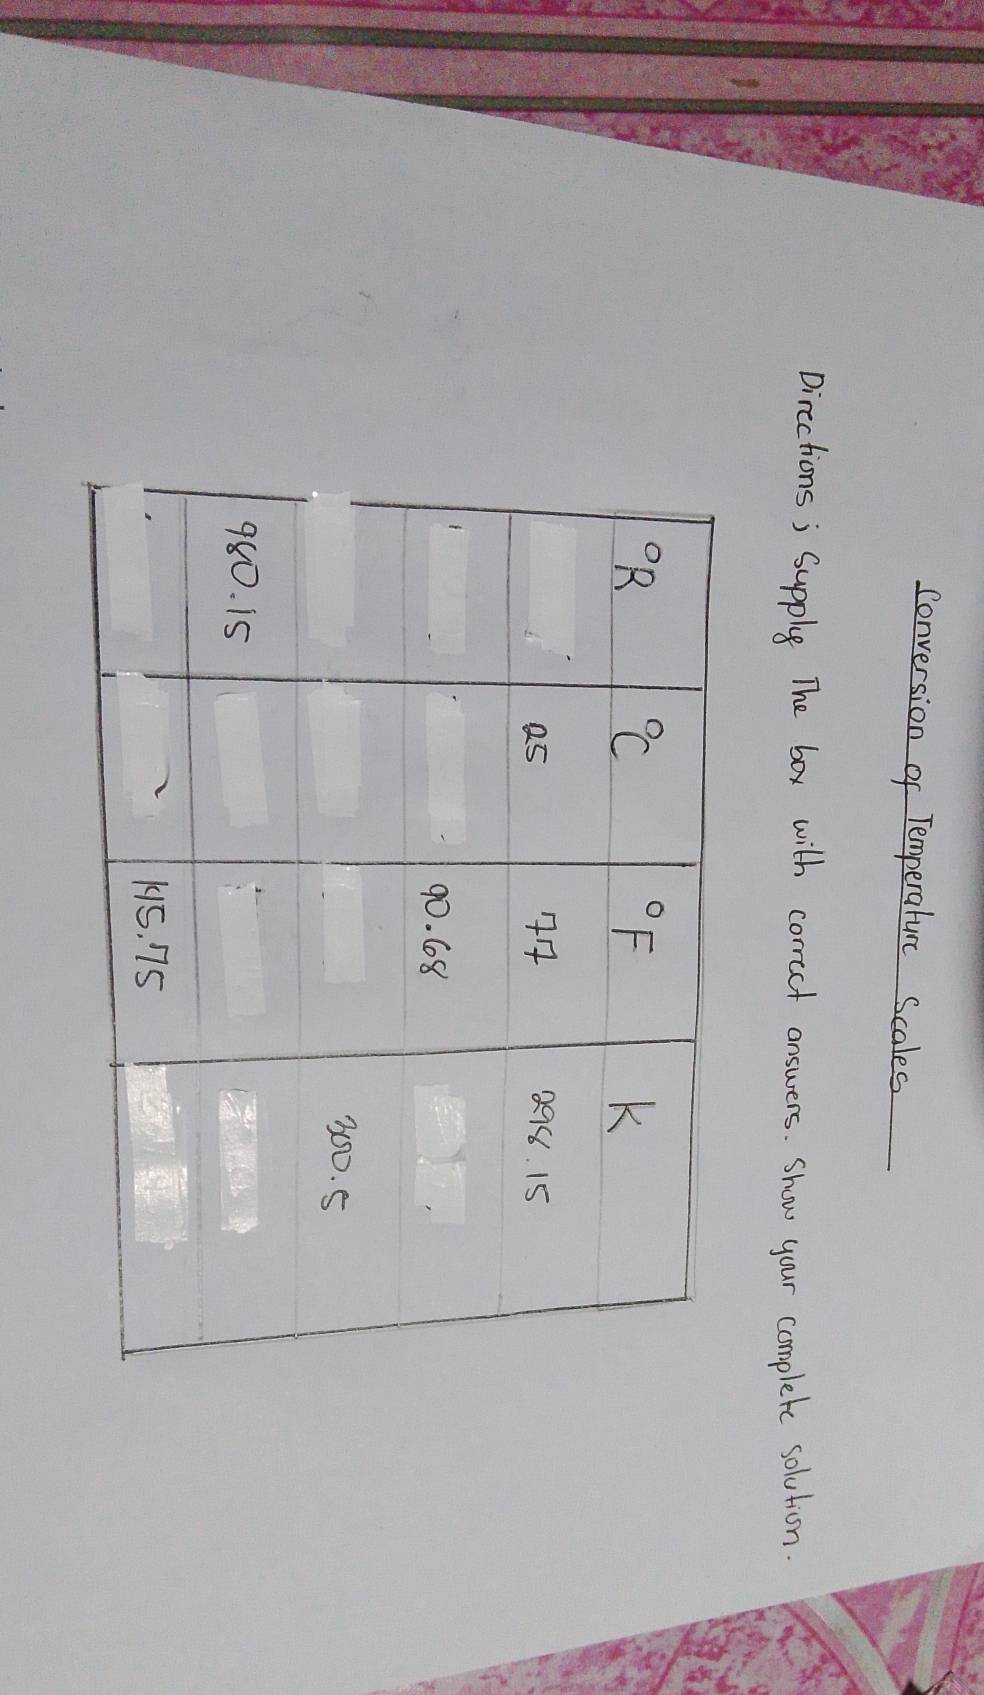 Conversion of Temperature Scales
Directions; Supply The box with correct answers. Show your complete solution.
°R °C °F K
25 77 298.15
90.68
300.5
980.15
145.75